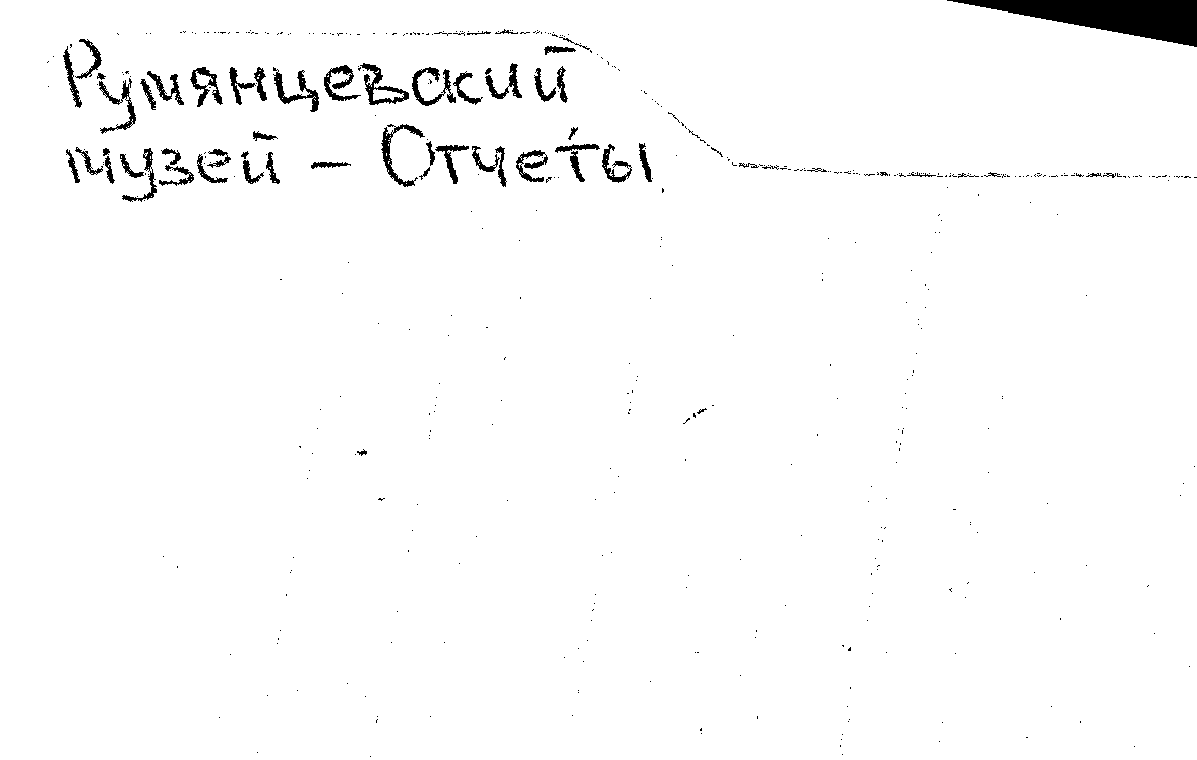 Румянцевский
музей – Отчеты